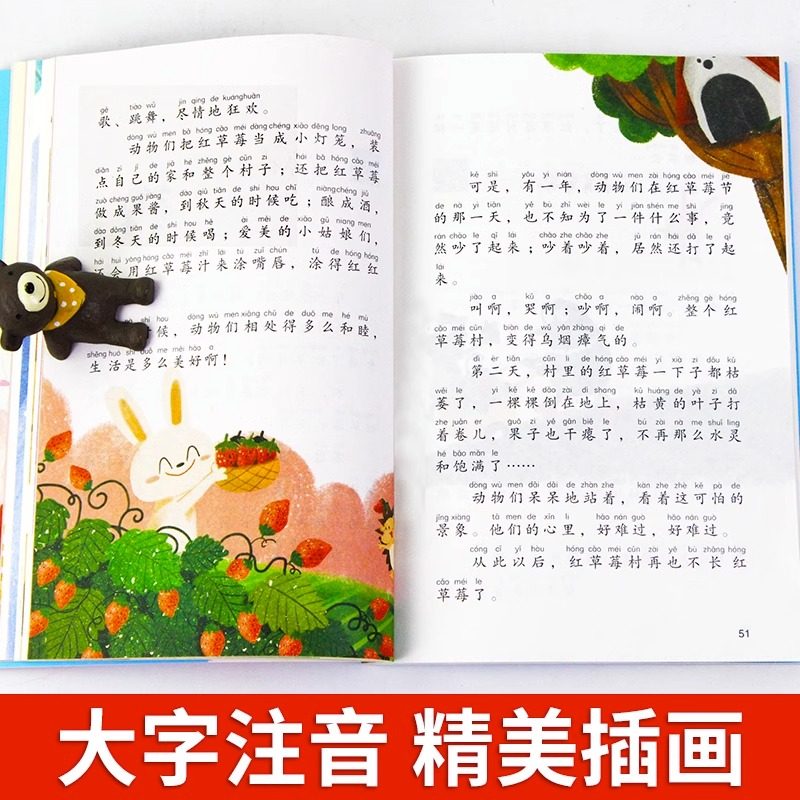 gē tiào wǔ jìn qíng de kuánghuān
歌、跳舞，尽情地狂欢。
dòng wù men bǎ hóng cǎo méi dàng chéng xiǎo dēng long zhuāng
动物们把红草莓当成小灯笼，装
diǎn zì jǐ de jiā hé zhěng gè cūn zi hái bǎ hóng cǎo méi
点自己的家和整个村子；还把红草莓
zuò chéng guǒ jiàng dào qiū tiān de shí hou chī niàng chéng jiǔ
做成果酱，到秋天的时候吃；酿成酒，
dào dōng tiān de shí hou hē ài měi de xiǎo gū niang men
到冬天的时候喝；爱美的小姑娘们，
hái huì yòng hóng cǎo méi zhī lái tú zuǐ chún tú de hóng hóng
还会用红草莓汁来涂嘴唇，涂得红红
shí hou dòng wù men xiāng chǔ de duō me hé mù
时候，动物们相处得多么和睦，
shēng huó shì duō me měi hǎo a
生活是多么美好啊！
kě shì yǒu yì nián dòng wù men zài hóng cǎo méi jié
可是，有一年，动物们在红草莓节
de nà yì tiān yě bù zhī wèi le yí jiàn shén me shì jìng
的那一天，也不知为了一件什么事，竟
rán chǎo le qǐ lái chǎo zhe chǎo zhe jū rán hái dǎ le qǐ
然吵了起来；吵着吵着，居然还打了起
lái
来。
jiào a kū a chǎo a nào a zhěng gè hóng
叫啊，哭啊；吵啊，闹啊。整个红
cǎo méi cūn biàn de wū yān zhàng qì de
草莓村，变得乌烟瘴气的。
dì èr tiān cūn lǐ de hóng cǎo méi yí xià zi dōu kū
第二天，村里的红草莓一下子都枯
wěi le yì kē kē dǎo zài dì shang kū huáng de yè zi dǎ
萎了，一棵棵倒在地上，枯黄的叶子打
zhe juǎn er guǒ zi yě gān biě le bú zài nà me shuǐ líng
着卷儿，果子也干瘪了，不再那么水灵
hé bǎo mǎn le
和饱满了……
dòng wù men dāi dāi de zhàn zhe kàn zhe zhè kě pà de
动物们呆呆地站着，看着这可怕的
jǐng xiàng tā men de xīn lǐ hǎo nán guò hǎo nán guò
景象。他们的心里，好难过，好难过。
cóng cǐ yǐ hòu hóng cǎo méi cūn zài yě bù zhǎng hóng
从此以后，红草莓村再也不长红
cǎo méi le
草莓了。
51
大字注音 精美插画